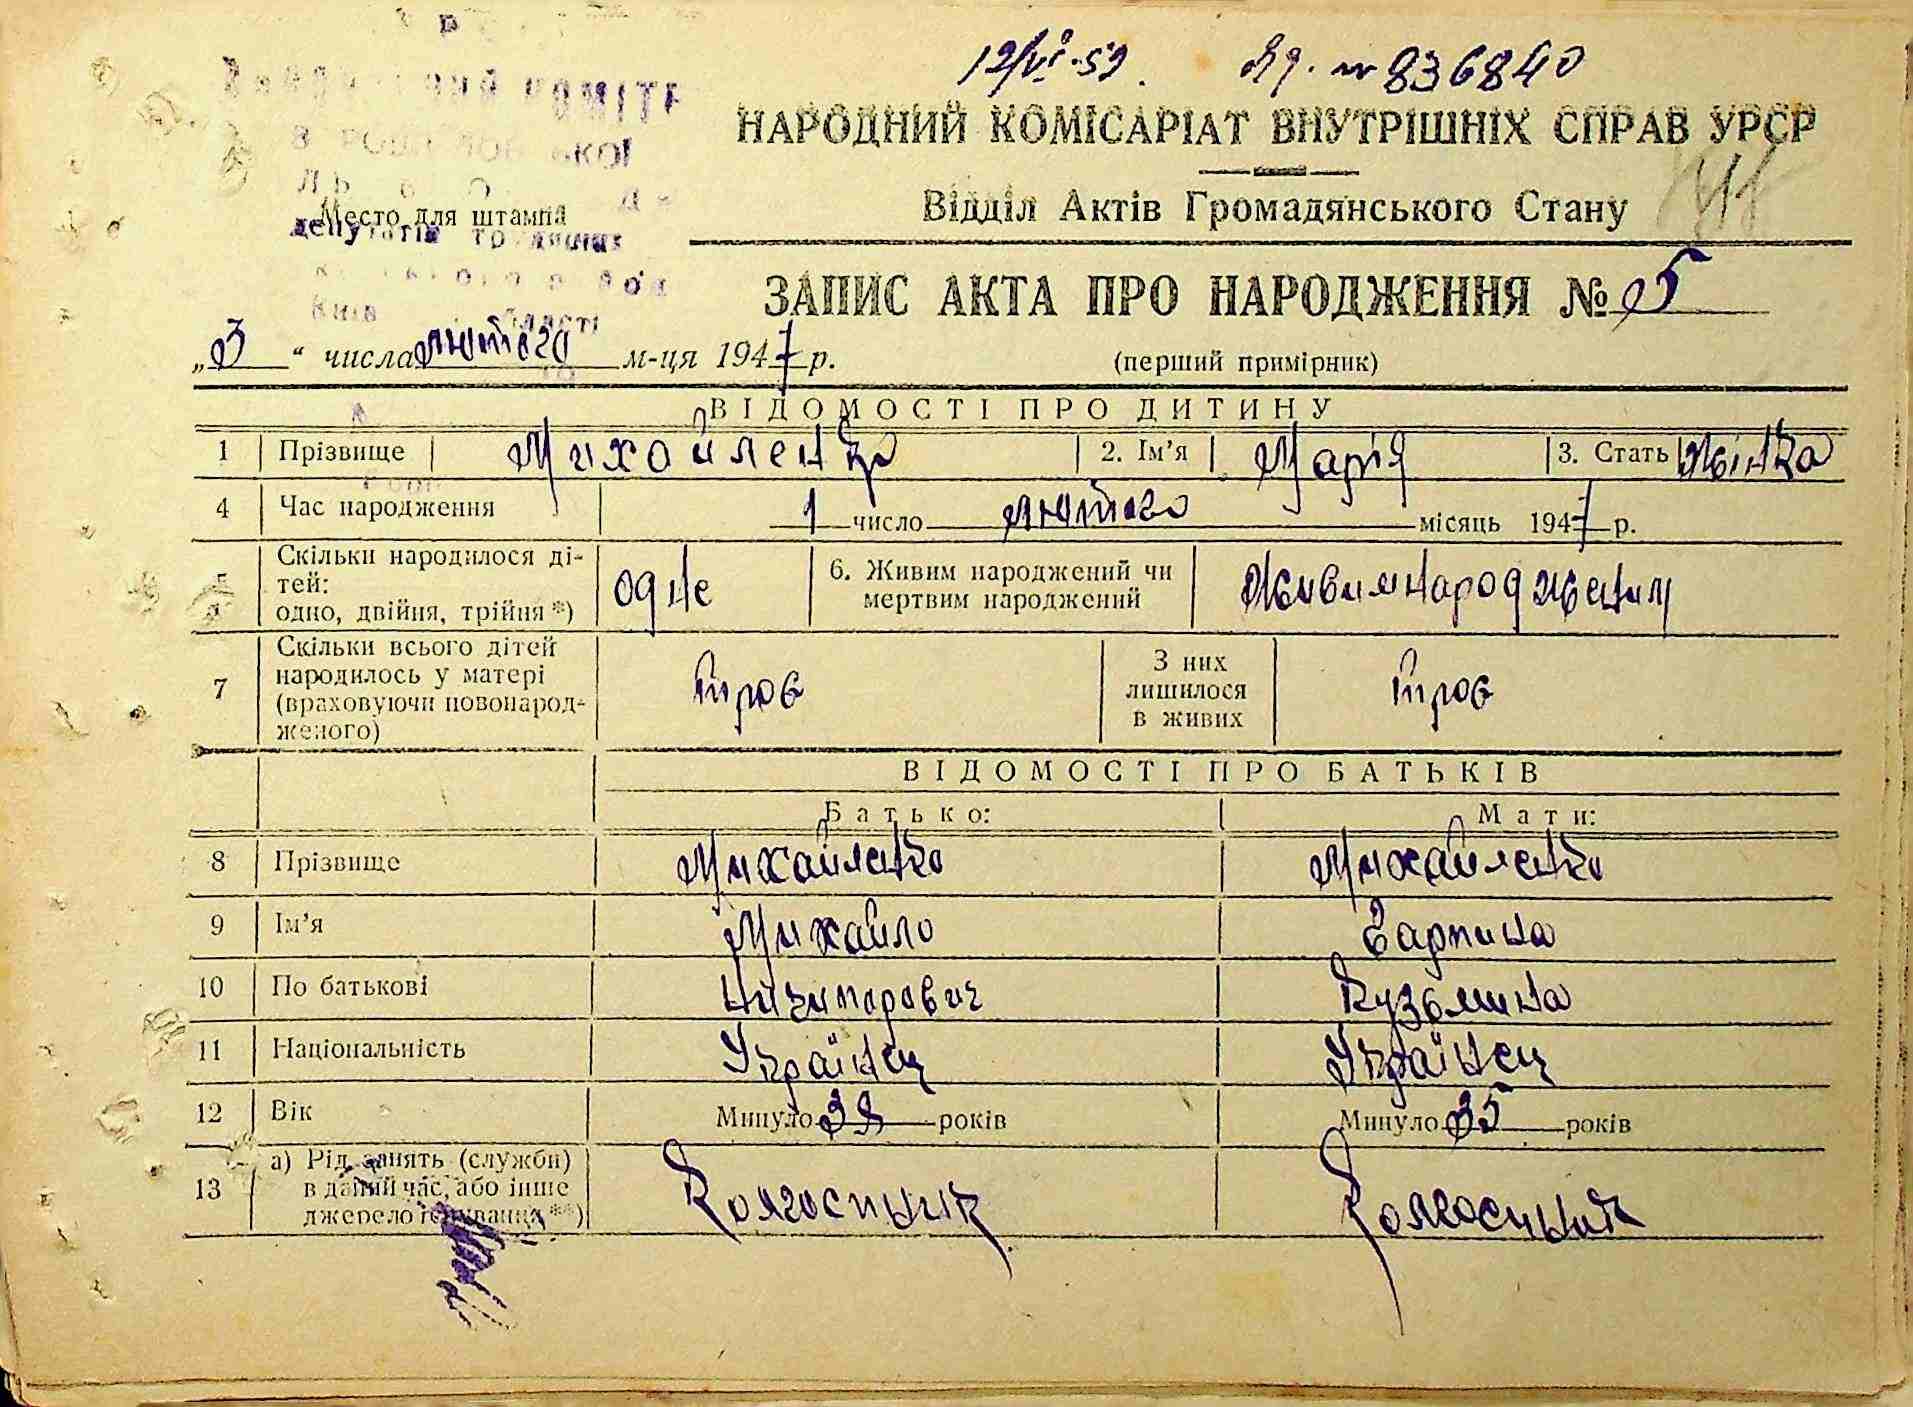 12/VI-59. № 836840
НАРОДНИЙ КОМІСАРІАТ ВНУТРІШНІХ СПРАВ УРСР
Відділ Актів Громадянського Стану
КОМІТЕ
Место для штампа
депутатів трудящих
області
ЗАПИС АКТА ПРО НАРОДЖЕННЯ № 5
„3“ числа лютого м-ця 1947 р. (перший примірник)
ВІДОМОСТІ ПРО ДИТИНУ
1 Прізвище Михайленко 2. Ім'я Марія 3. Стать жінка
4 Час народження 1 число лютого місяць 1947 р.
5 Скільки народилося ді-
тей:
одно, двійня, трійня*) одне 6. Живим народжений чи
мертвим народжений Живимнародженим
7 Скільки всього дітей
народилось у матері
(враховуючи новонарод-
женого) троє З них
лишилося
в живих троє
ВІДОМОСТІ ПРО БАТЬКІВ
Батько: Мати:
8 Прізвище Михайленко Михайленко
9 Ім'я Михайло
10 По батькові Кузьмина
11 Національність Українец Українец
12 Вік Минуло років Минуло 35 років
13 а) Рід занять (служби)
в даний час, або інше
джерело існування**) Колгоспник Колгоспник